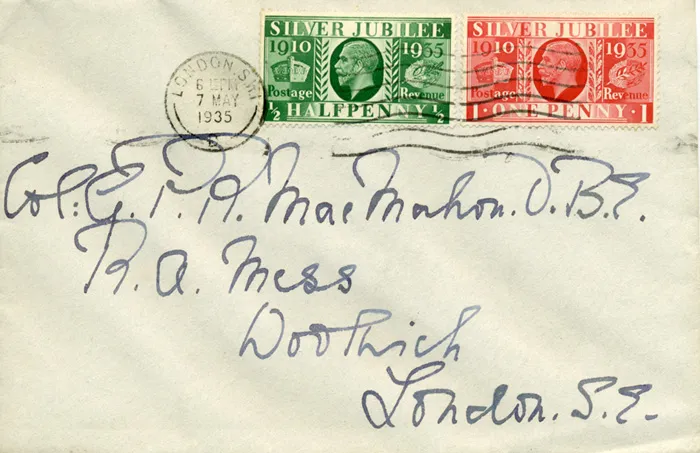 SILVER JUBILEE
1910 1935
Postage Revenue
½ HALFPENNY ½
SILVER JUBILEE
1910 1935
Postage Revenue
1 · ONE PENNY · 1
LONDON. S.W.1
7 MAY
1935
Col: MacMahon. O.B.E.
R. A. Mess
Woolwich
London. S.E.